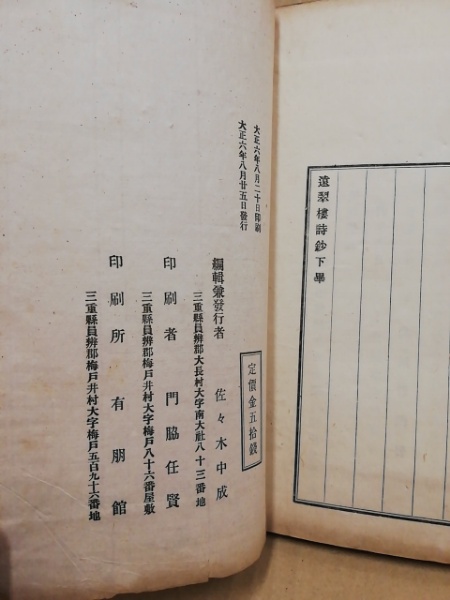 遠翠樓詩鈔下畢
大正六年八月二十日印刷
大正六年八月廿五日發行
定價金五拾錢
編輯兼發行者 佐々木中成
三重縣員辨郡大長村大字南大社八十三番地
印刷者 門脇任賢
三重縣員辨郡梅戸井村大字梅戸八十六番屋敷
印刷所 有朋館
三重縣員辨郡梅戸井村大字梅戸五百九十六番地